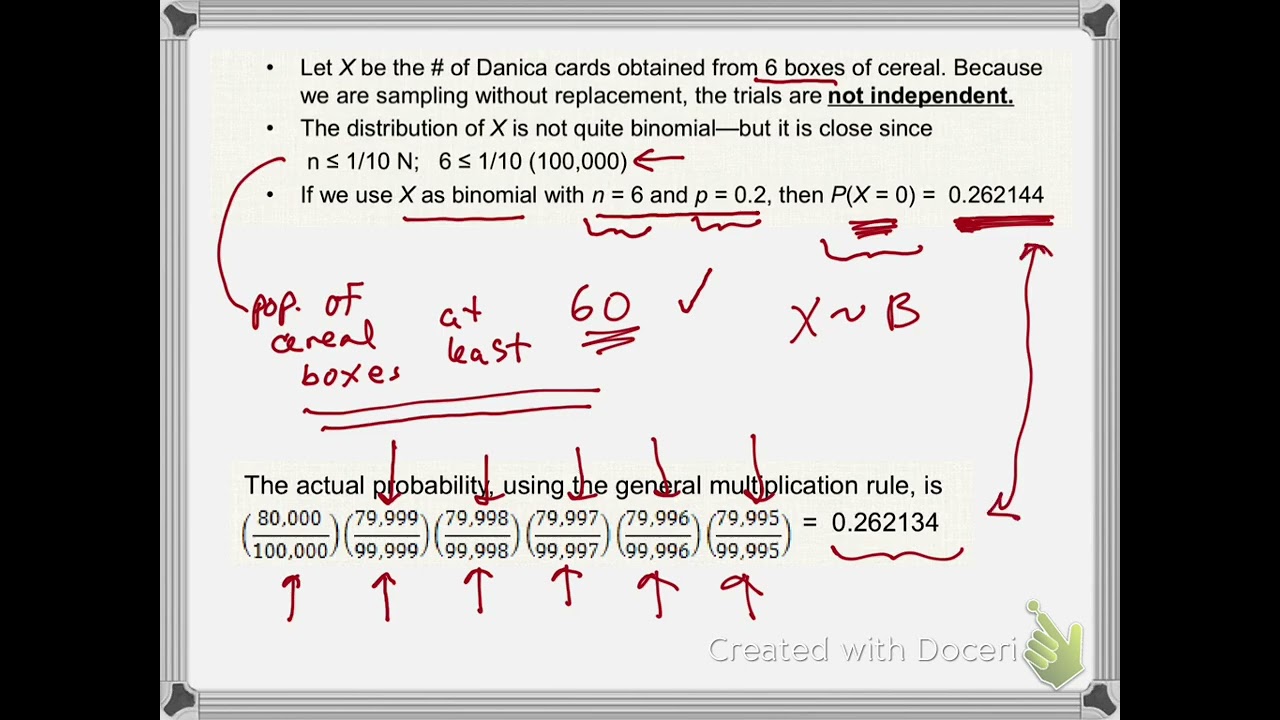 • Let X be the # of Danica cards obtained from 6 boxes of cereal. Because
we are sampling without replacement, the trials are not independent.
• The distribution of X is not quite binomial—but it is close since
n ≤ 1/10 N; 6 ≤ 1/10 (100,000)
• If we use X as binomial with n = 6 and p = 0.2, then P(X = 0) = 0.262144
pop. of
cereal
boxes
at
least
60 ✓
X ~ B
The actual probability, using the general multiplication rule, is
(80,000/100,000)(79,999/99,999)(79,998/99,998)(79,997/99,997)(79,996/99,996)(79,995/99,995) = 0.262134
Created with Doceri